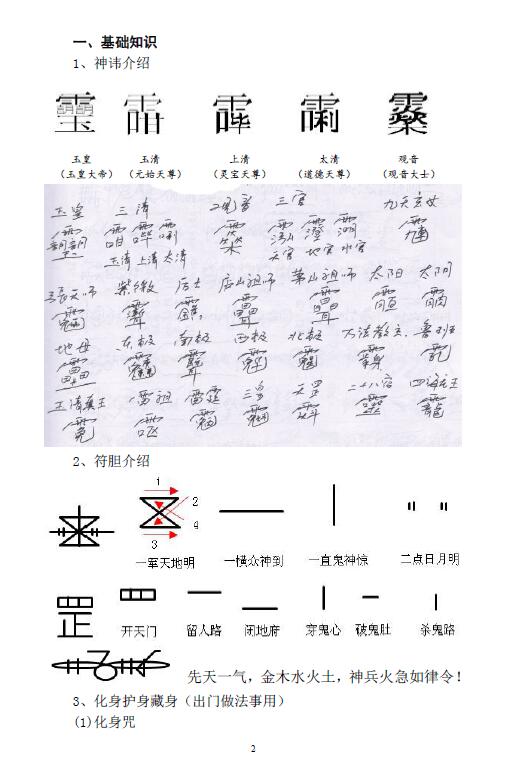 一、基础知识
1、神讳介绍
玉皇 玉清 上清 太清 观音
(玉皇大帝) (元始天尊) (灵宝天尊) (道德天尊) (观音大士)
玉皇 三清 观音 三官 九天玄女
玉清 上清 太清 天官 地官 水官
张天师 紫微 后土 茅山祖师 太阳 太阴
地母 东极 南极 西极 北极 万法教主 鲁班
玉清真王 雷祖 雷霆 三皇 天罡 二十八宿 四海龙王
2、符胆介绍
1
2
4
3
一军天地明 一横众神到 一直鬼神惊 二点日月明
开天门 留人路 闭地府 穿鬼心 破鬼肚 杀鬼路
先天一气，金木水火土，神兵火急如律令！
3、化身护身藏身（出门做法事用）
(1)化身咒
2